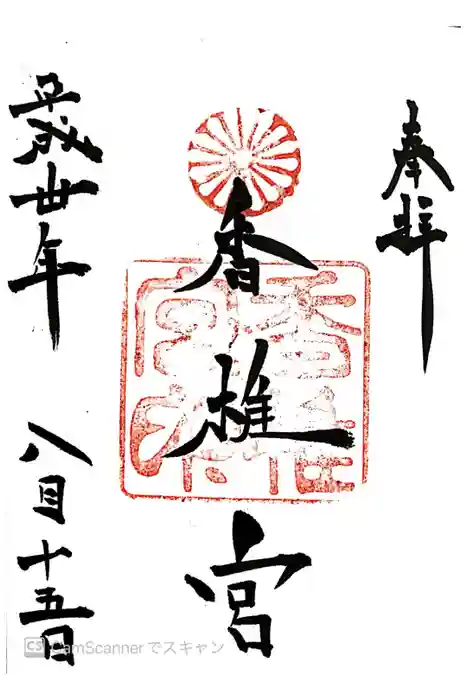 奉拝
香椎宮
平成卅年 八月十五日
CS CamScannerでスキャン